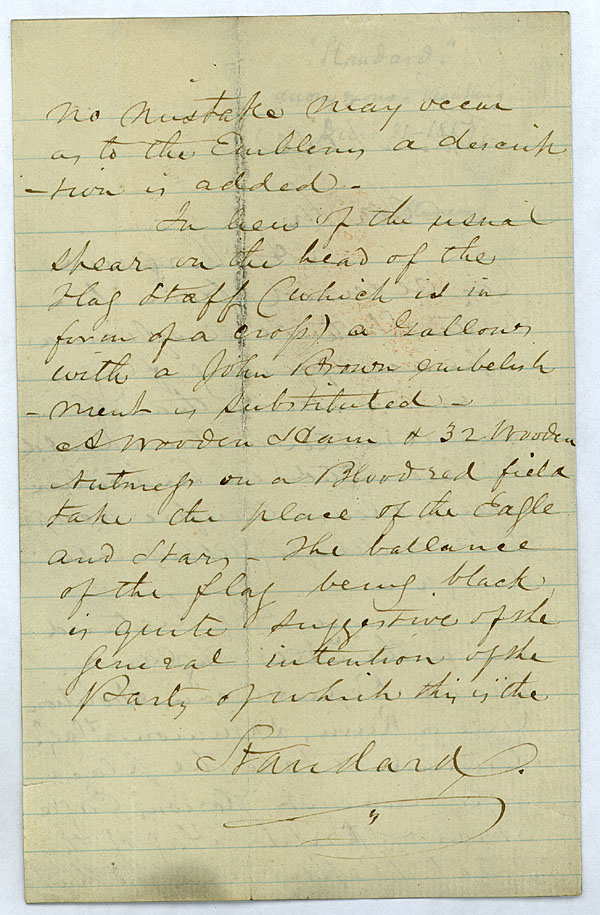 no mistake may occur
as to the Emblems a descrip
-tion is added -
In lieu of the usual
spear on the head of the
Flag Staff (which is in
form of a cross) a Gallows
with a John Brown embelish
-ment is substituted -
A Wooden Ham & 32 Wooden
Nutmegs on a Blood red field
take the place of the Eagle
and Stars - The ballance
of the flag being black
is quite suggestive of the
general intention of the
Party of which this is the
Standard.